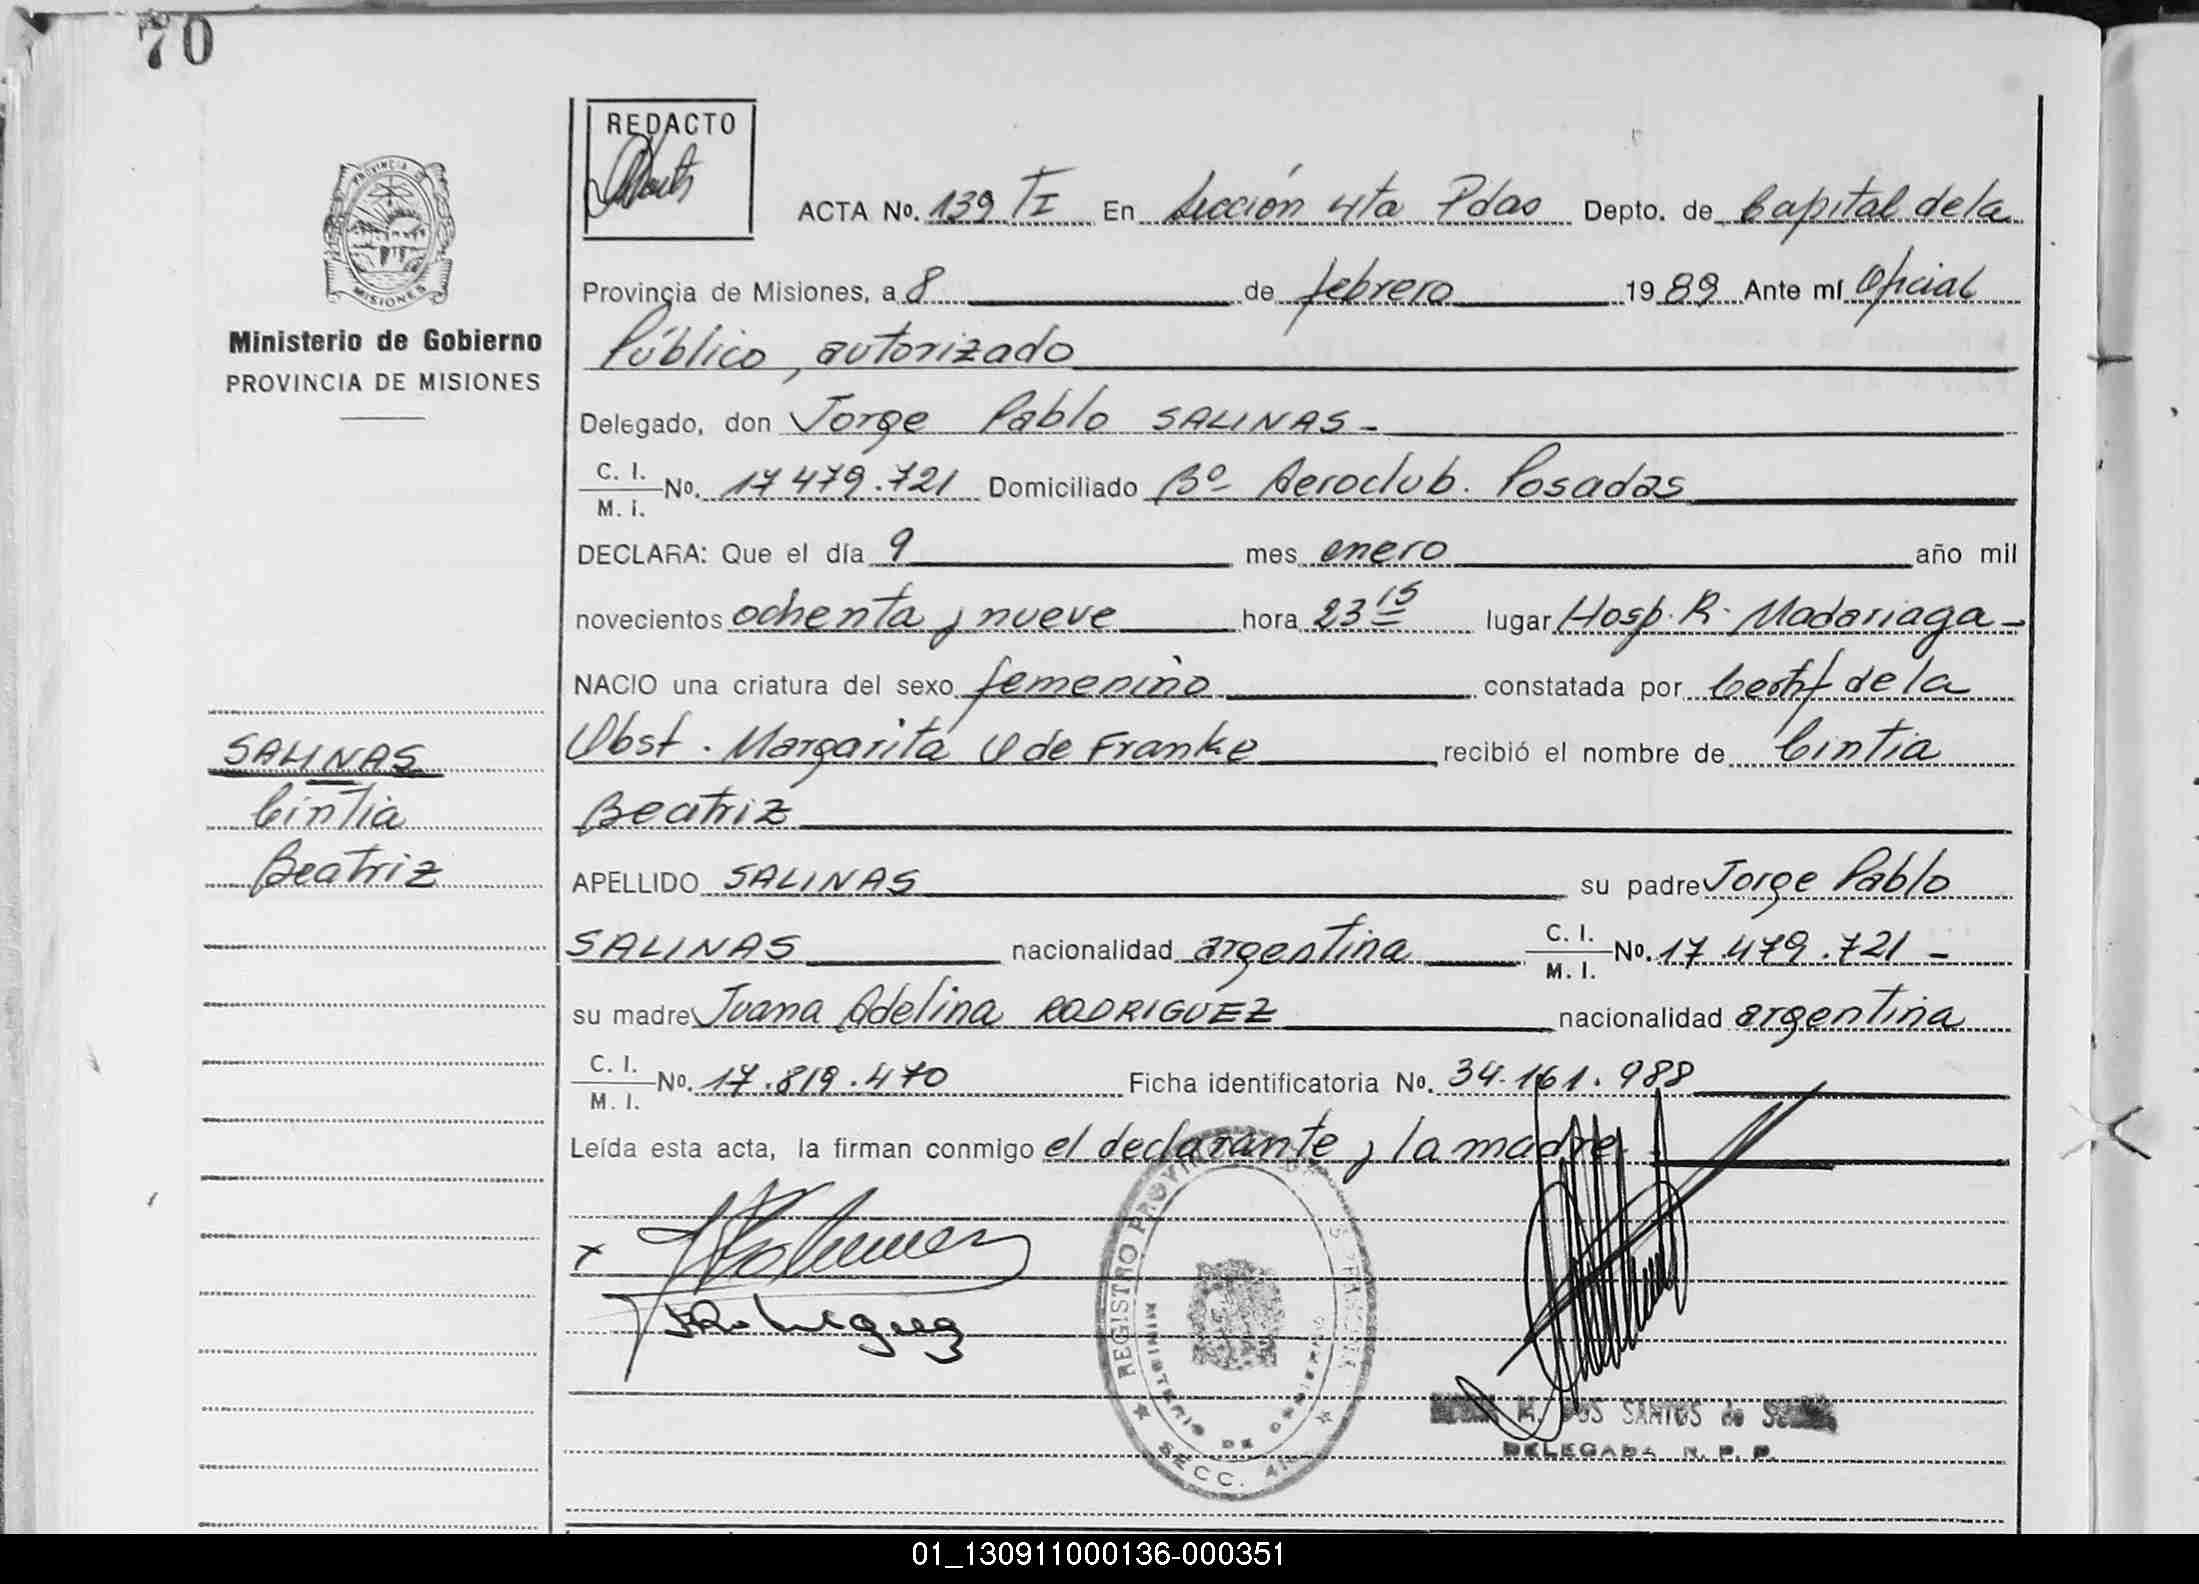 70
REDACTO
ACTA No. 139 TI En Sección 4ta Pdas Depto. de Capital de la
Provincia de Misiones, a 8 de febrero 1989 Ante mí Oficial
Público, autorizado
Delegado, don Jorge Pablo SALINAS -
C. I.
M. I. No. 17 479.721 Domiciliado Bº Aeroclub. Posadas
DECLARA: Que el día 9 mes enero año mil
novecientos ochenta y nueve hora 23 15 lugar Hosp. R. Madariaga -
NACIO una criatura del sexo femenino constatada por Certif de la
Obst. Margarita O de Franke recibió el nombre de Cintia
Beatriz
APELLIDO SALINAS su padre Jorge Pablo
SALINAS nacionalidad argentina C. I.
M. I. No. 17.479.721 -
su madre Juana Adelina RODRIGUEZ nacionalidad argentina
C. I.
M. I. No. 17.819.470 Ficha identificatoria No. 34.161.988
Leída esta acta, la firman conmigo el declarante y la madre
x
Rodriguez
PROVINCIA
MISIONES
Ministerio de Gobierno
PROVINCIA DE MISIONES
SALINAS
Cintia
Beatriz
REGISTRO PROVIN
MINISTERIO DE GOBIERNO
SECC.
M. DOS SANTOS de
DELEGADA R. P. P.
01_130911000136-000351